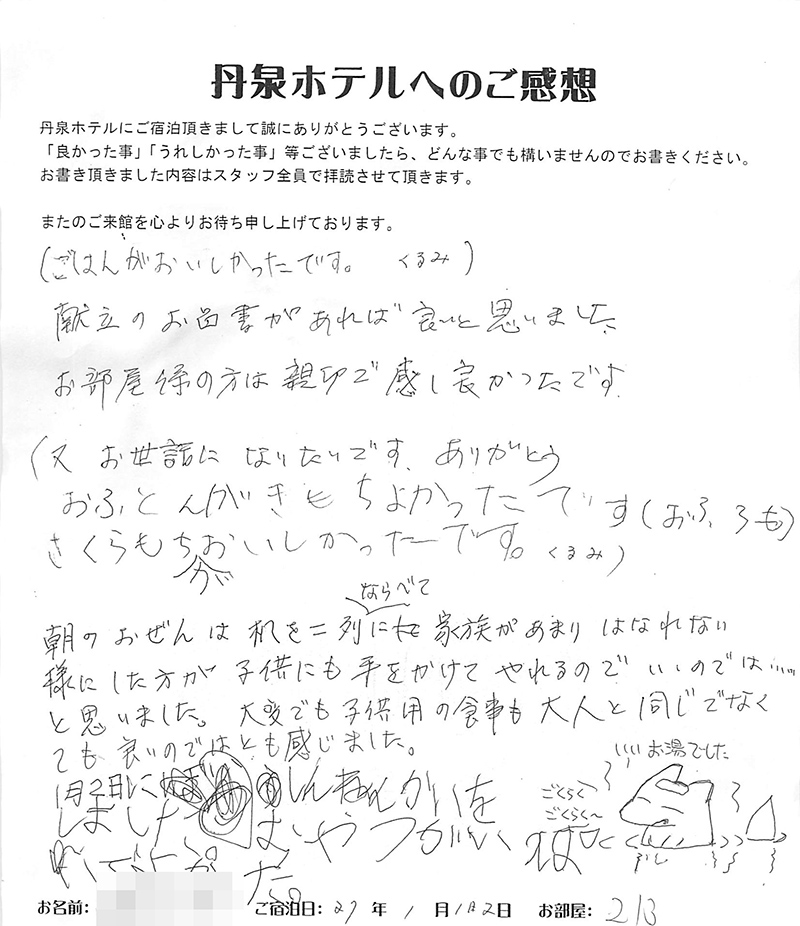 丹泉ホテルへのご感想
丹泉ホテルにご宿泊頂きまして誠にありがとうございます。
「良かった事」「うれしかった事」等ございましたら、どんな事でも構いませんのでお書きください。
お書き頂きました内容はスタッフ全員で拝読させて頂きます。
またのご来館を心よりお待ち申し上げております。
(ごはんがおいしかったです。 くるみ)
献立のお品書があれば良いと思いました
お部屋係の方は親切で感じ良かったです
(又 お世話になりたいです。ありがとう
おふとんがきもちよかったです(おふろも)
さくらもちがおいしかったーです。(くるみ)
ならべて
朝のおぜんは机を二列に 家族があまりはなれない
様にした方が子供にも手をかけてやれるのでいいのでは……
と思いました。大変でも子供用の食事も大人と同じでなく
ても良いのではとも感じました。
いいお湯でした
ごくらく
ごくらく〜
1月2日に しんねんかいを
しました
お名前: ご宿泊日: 27 年 1 月 1月2日 お部屋: 213